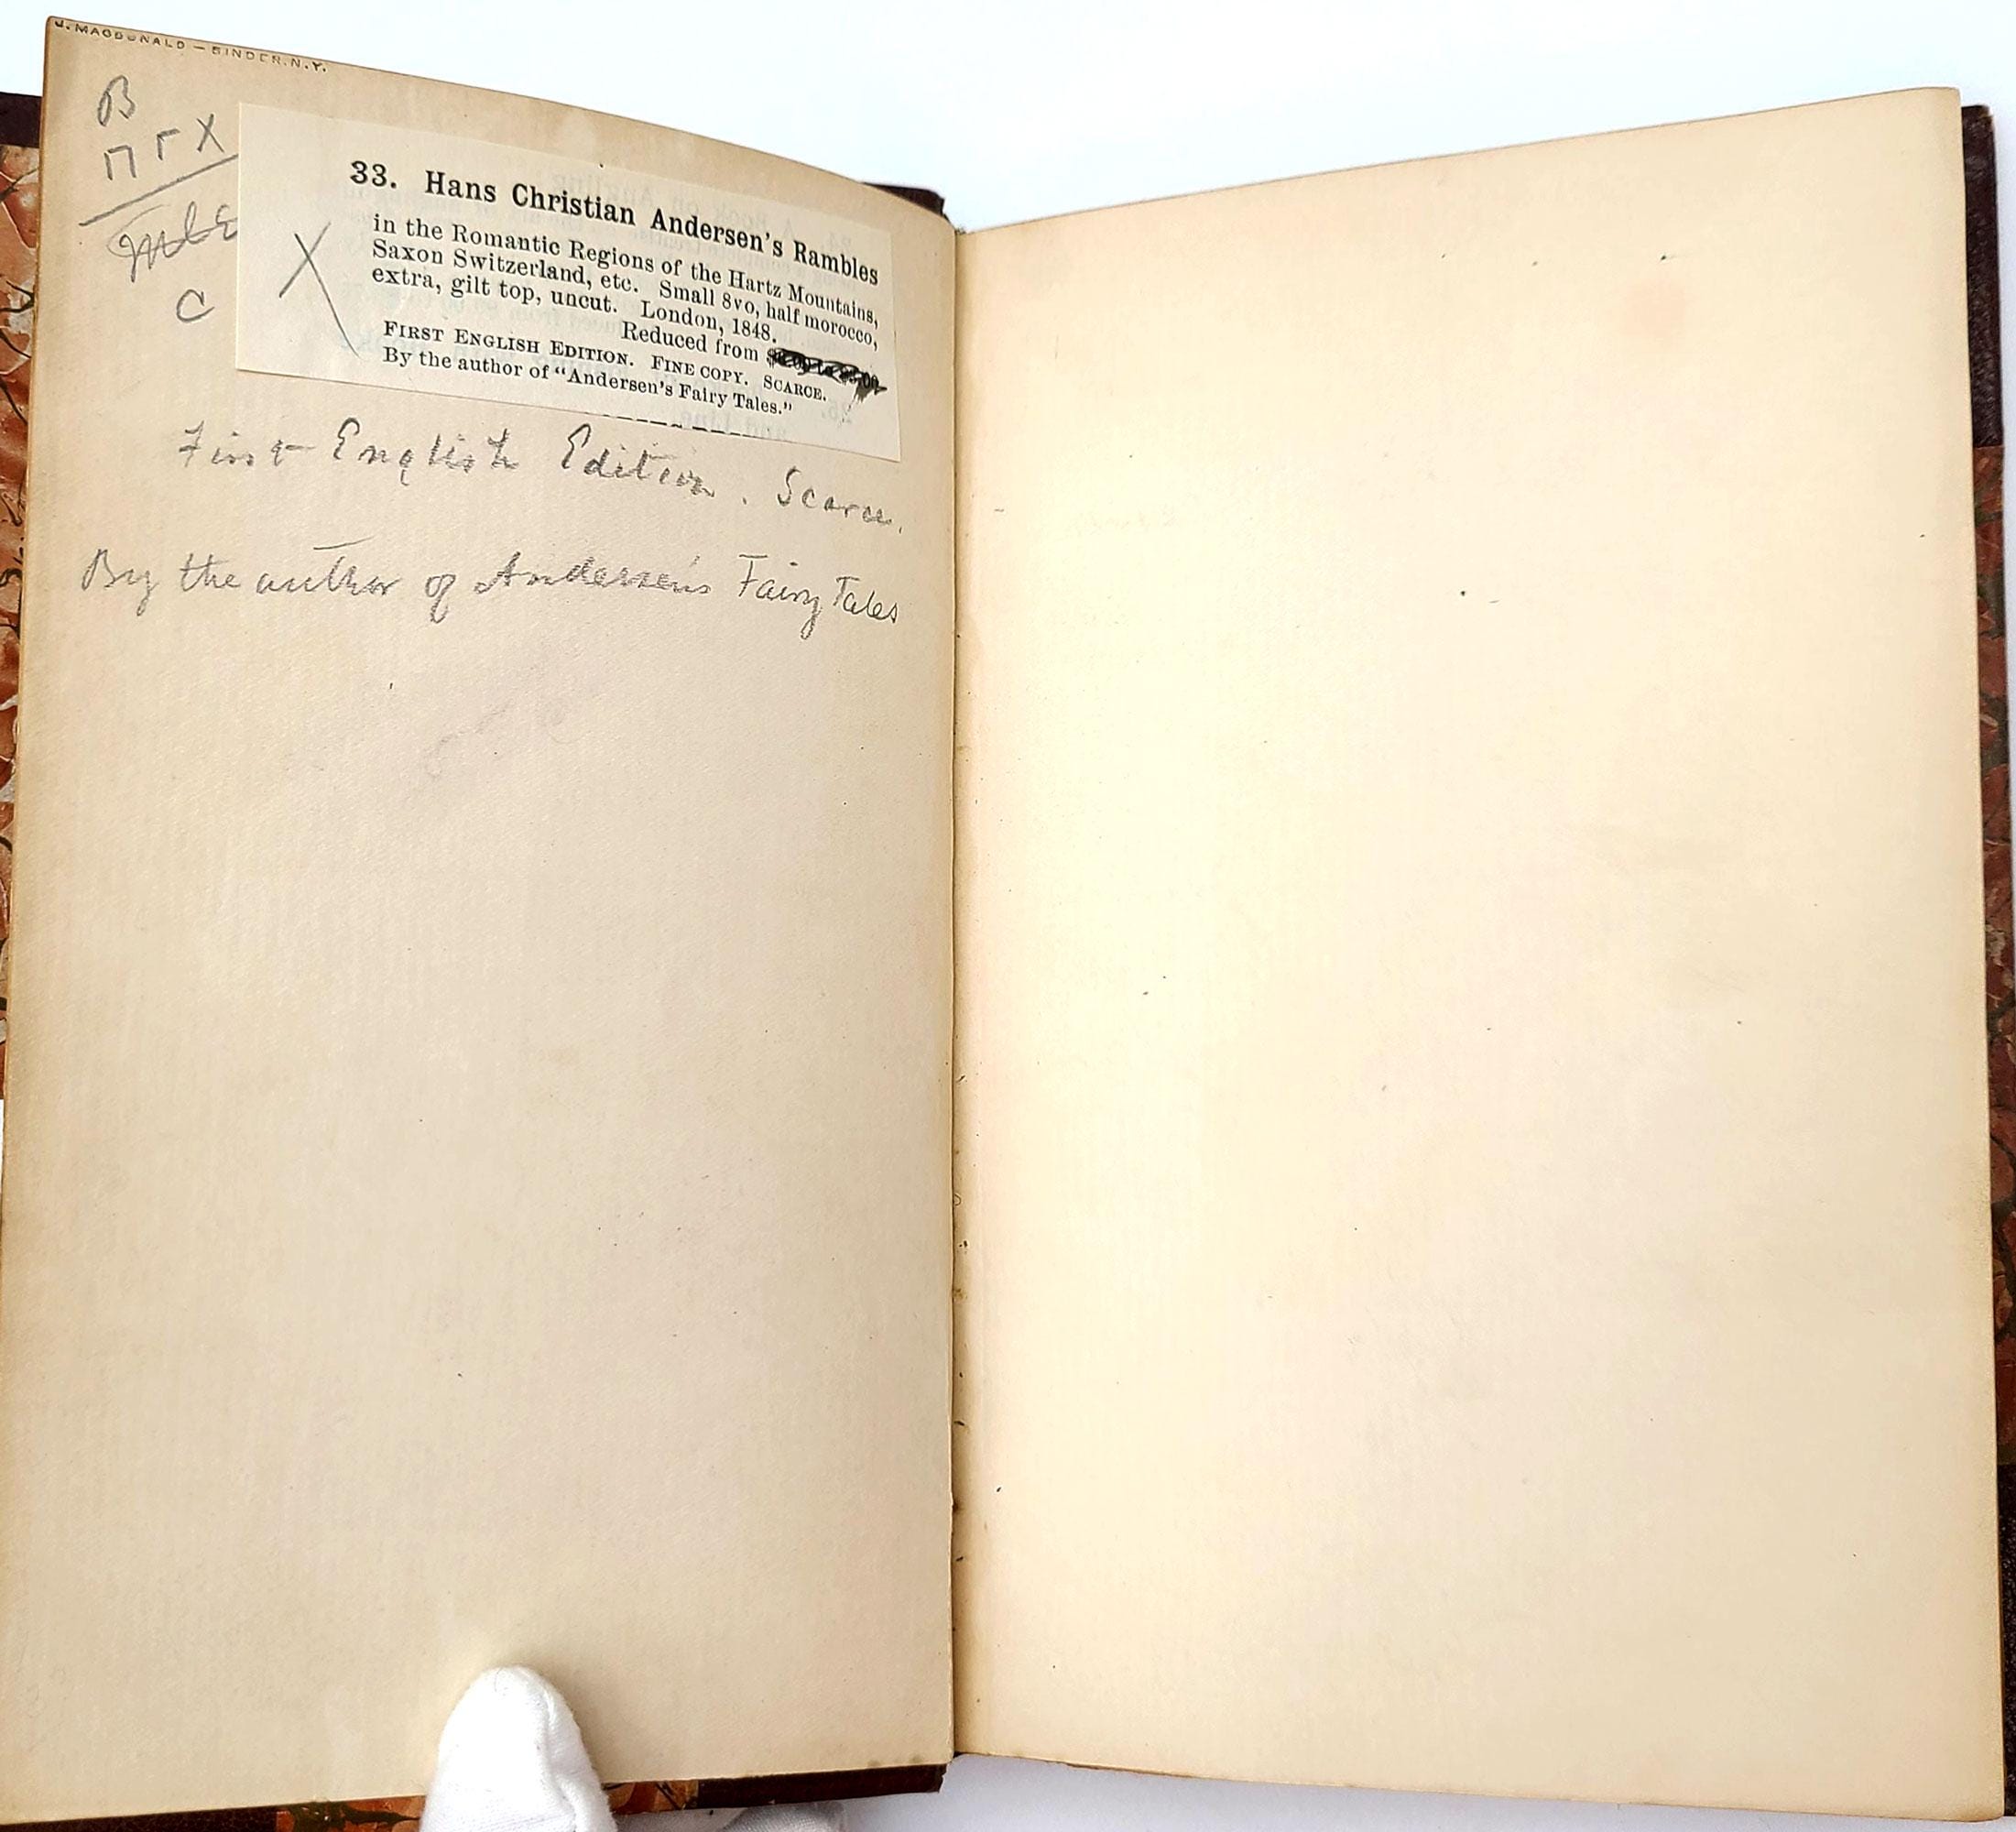 J. MACDONALD — BINDER. N.Y.
B
33. Hans Christian Andersen's Rambles
in the Romantic Regions of the Hartz Mountains,
Saxon Switzerland, etc. Small 8vo, half morocco,
extra, gilt top, uncut. London, 1848.
Reduced from
FIRST ENGLISH EDITION. FINE COPY. SCARCE.
By the author of "Andersen's Fairy Tales."
C
First English Edition. Scarce.
By the author of Andersen's Fairy Tales